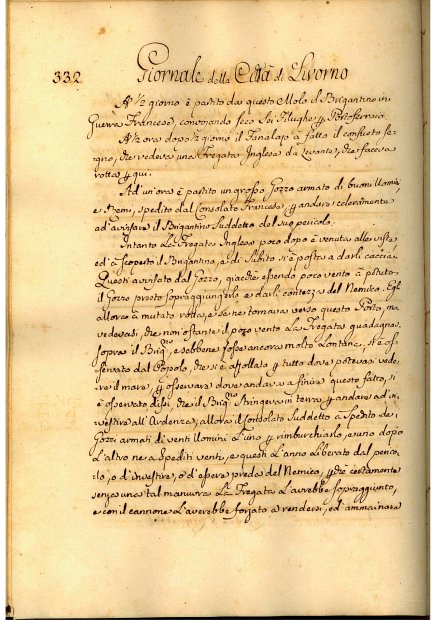 332
Giornale della Città di Livorno
A' ½ giorno è partito da questo Molo il Brigantino in
Guerra Francese, convojando seco Sei Filughe p Portoferraio
A' ½ ora dopo ½ giorno il Fanalajo à fatto il consueto se-
gno, che vedeva una Fregata Inglese da Levante, che faceva
rotta p qui.
Ad un'ora è partito un grosso Gozzo armato di buoni Uomini,
e Remi, spedito dal Consolato Francese, p andare celeramente
ad avvisare il Brigantino Suddetto del suo pericolo.
Intanto La Fregata Inglese poco dopo è venuta alla vista,
ed à scoperto il Brigantino, e di Subito si è posta a darli caccia.
Questi avvisato dal Gozzo, giacche essendo poco vento à potuto
il Gozzo presto sopraggiungerlo, e darli contezza del Nemico. Egli
allora à mutato rotta, e se ne tornava verso questo Porto, ma
vedevasi, che non'ostante il poco vento La Fregata guadagnava
sopra il Brig.no, e sebbene fosse ancora molto Lontana, si è os-
servato dal Popolo, che si è affollato p tutto dove potevasi vede-
re il mare, p osservare dove andava a finire questo fatto, si
è osservato dissi, che il Brig.no Stringeva in terra p andare ad in-
vestire all'Ardenza, allora il Consolato Suddetto à Spedito de'
Gozzi armati di venti Uomini L'uno p rimburchiarlo, e uno dopo
L'altro ne à Spediti venti, e questi L'anno Liberato dal perico-
lo, o d'investire, o d'essere preda del Nemico, p che certamente
senza una tal manuvra La Fregata L'avrebbe sopraggiunto,
e con il cannone L'averebbe forzato a rendersi, ed ammainare